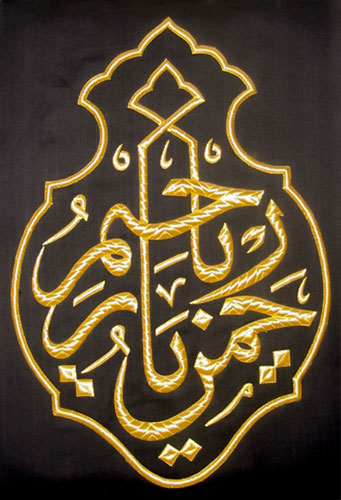 يا رحمن يا رحيم